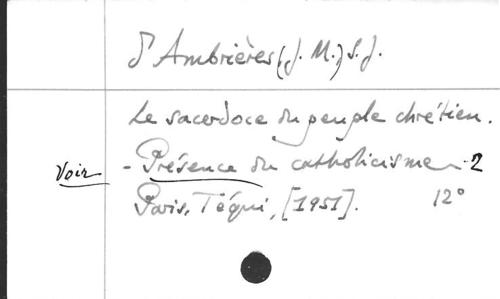 d'Ambrières (J. M.) S. J.
Le sacerdoce du peuple chrétien.
Voir - Présence du catholicisme - 2
Paris, Téqui, [1951]. 12°